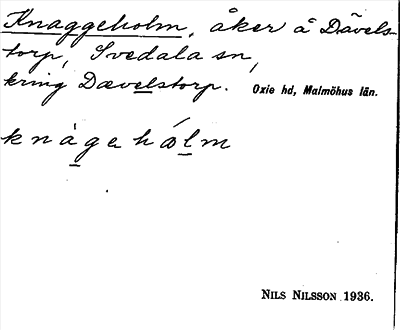 Knaggeholm, åker å Dävels-
torp, Svedala sn,
kring Dævelstorp. Oxie hd, Malmöhus län.
knàgehólm
NILS NILSSON 1936.